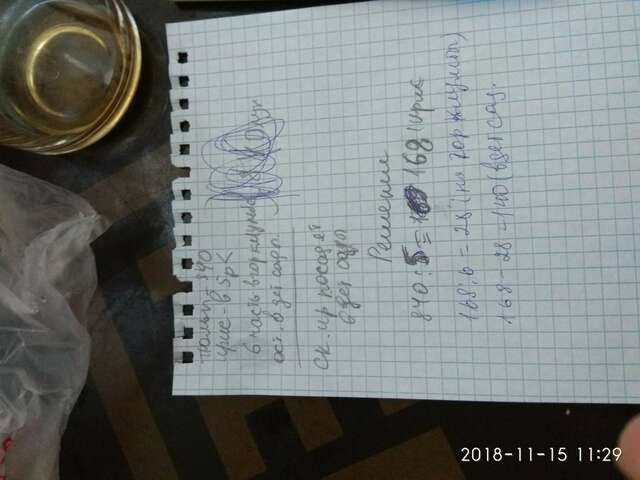 тюльп. 840
ирис - в 5р <
6 часть в гор клумб
ост. в дет садах
ск. ир посад ей
в дет садах
Решение
840:5=168 (ирис
168:6=28 (на гор клумбы)
168-28=140 (в дет сад.
2018-11-15 11:29